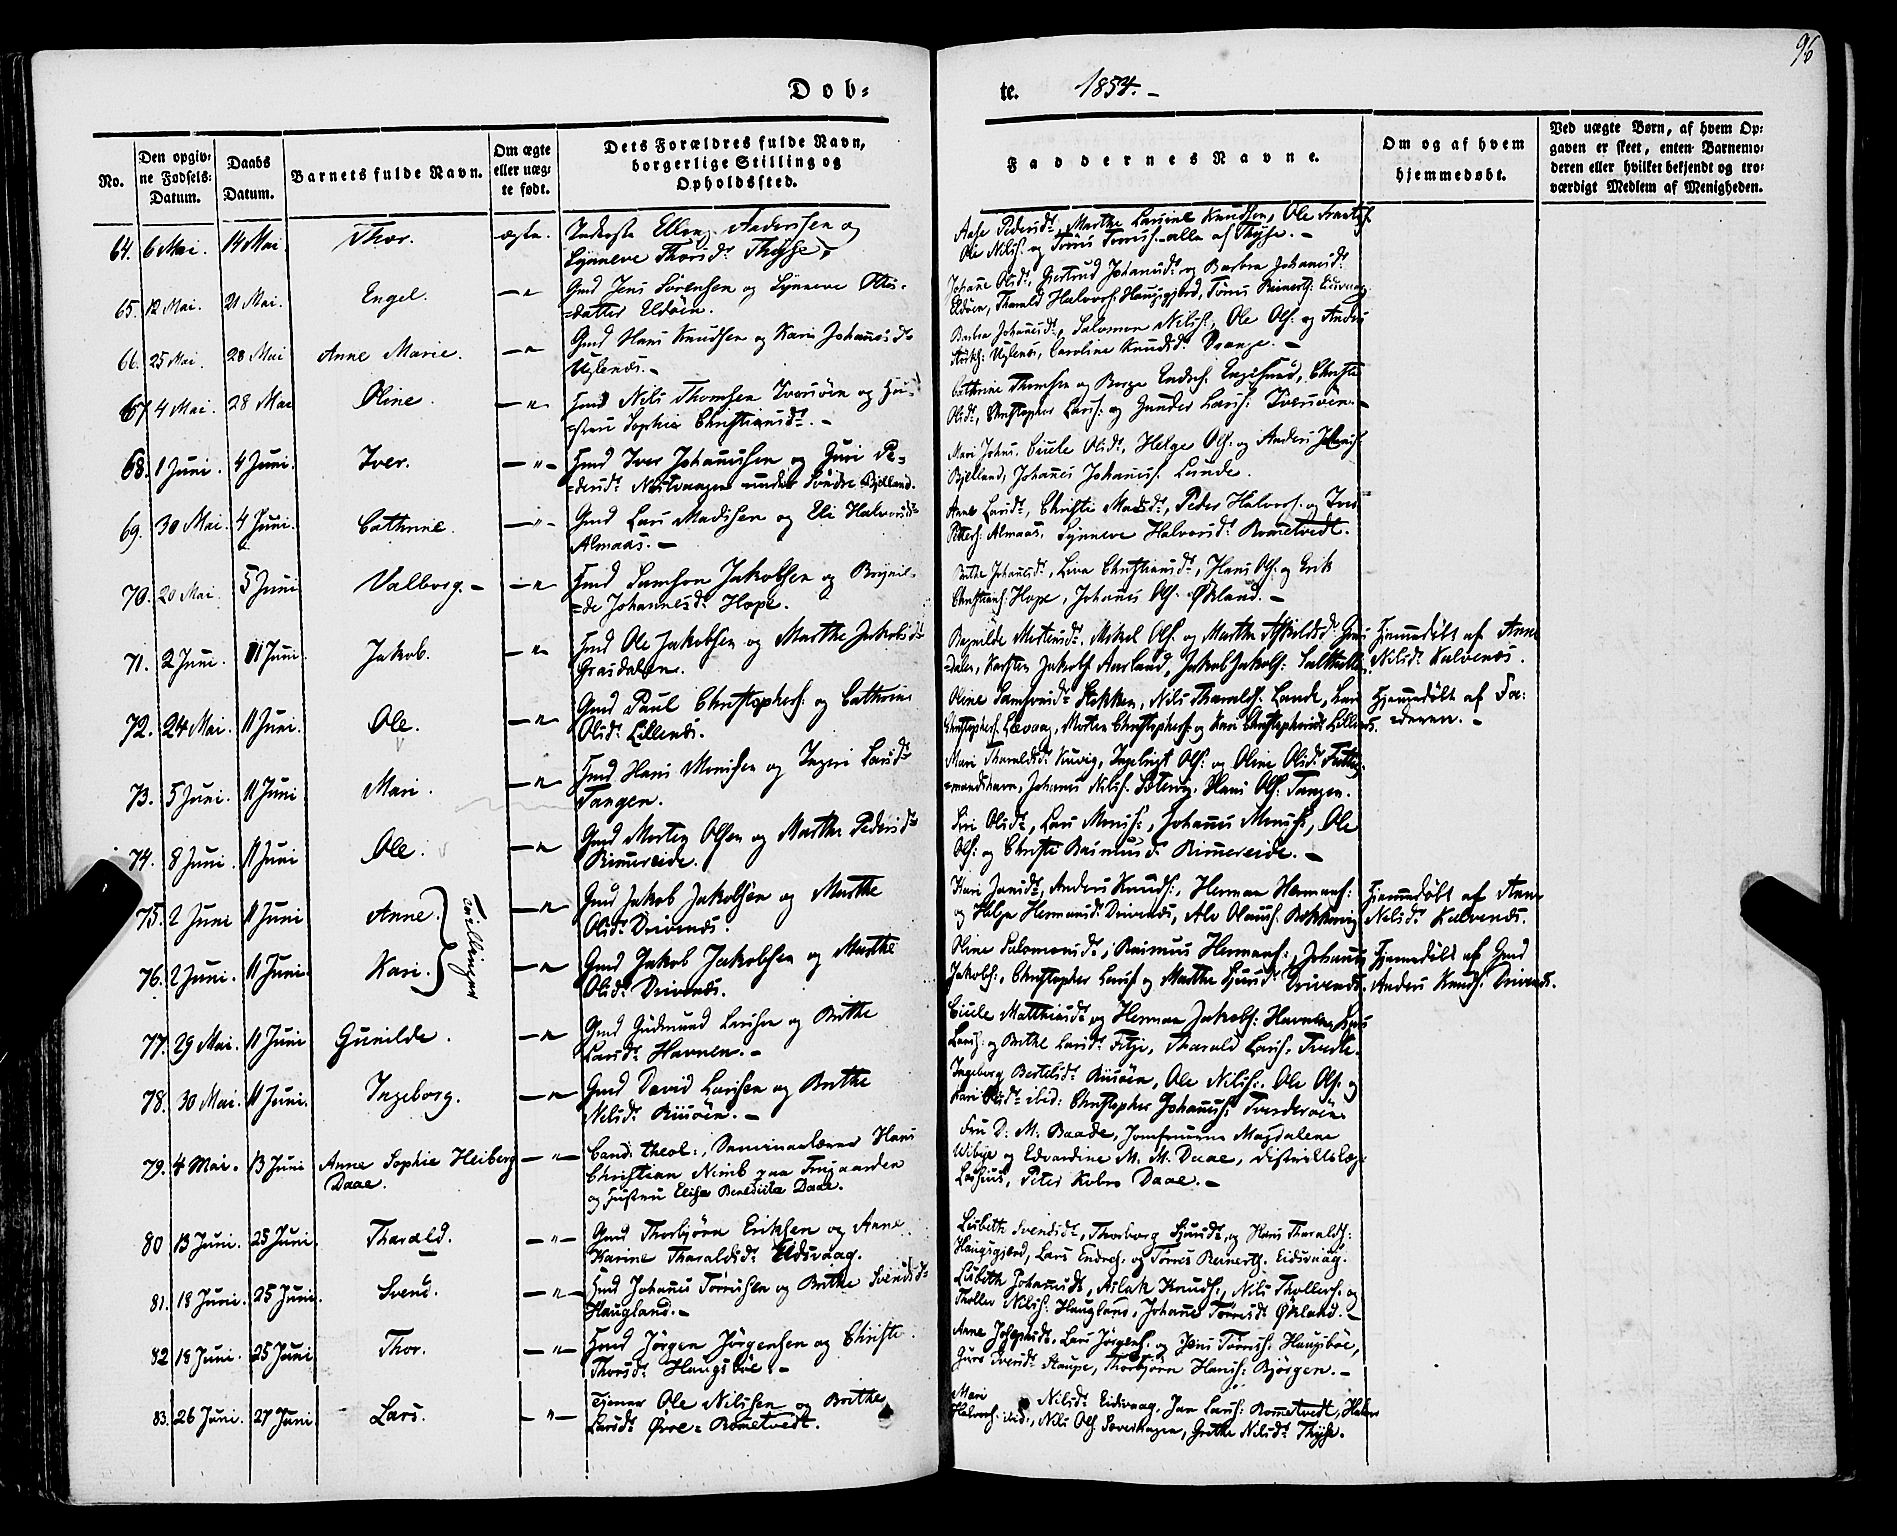 96
Dob=
te. 1854. -
No.
Den opgiv=
ne Fødsels=
Datum.
Daabs
Datum.
Barnets fulde Navn.
Om ægte
eller uæg=
te født.
Dets Forældres fulde Navn,
borgerlige Stilling og
Opholdssted.
Faddernes Navne.
Om og af hvem
hjemmedøbt.
Ved uægte Børn, af hvem Op=
gaven er skeet, enten Barnemo=
deren eller hvilket bekjendt og tro=
værdigt Medlem af Menigheden.
64. 6 Mai. 14 Mai. Thor. ægte. Inderste Elling Anderssen og
Synneve Thorsdt. Thyse.
Aase Pedersdt., Marthe Larsine Knudsen, Ole
Ole Nilss. og Tørris Tørriss. alle af Thyse. -
65. 12 Mai. 21 Mai. Engel. Gmd Jens Sørensen og Synneve Olis=
=datter Eldøen.
Johane Olsdt., Gjertrud Johansdt. og Barbra Johansdt.
Eldøen, Tharald Halvors. Haugsgjerd, Tørris Reinerts. Eidsvaag.
66. 25 Mai. 28 Mai Anne Marie. Gmd Hans Knudsen og Kari Johansdt
Uglenæs. -
Barbra Johansdt., Salomon Nilss., Ole Ols. og Anders
Uglenæs, Caroline Knudsdt. Drange. -
67. 4 Mai. 28 Mai Oline. Hmd Nils Thomsen Tverøen og Hu=
=stru Sophia Christiansdt. -
Cathrine Thomsen og Børge Endres. Engesund, Christi
Olsdt., Christopher Larss. og Gunder Larss. Tverøen. -
68. 1 Juni. 4 Juni. Iver. Hmd Iver Johannesen og Guri Pe=
=dersdt. Nestvaagen under Søndre Bjelland.
Mari Johns., Ciscele Olsdt., Helge Ols. og Anders
Bjelland, Johanes Johaness. Lunde.
69. 30 Mai. 4 Juni. Cathrine. Gmd Lars Madssen og Eli Halvorsdt
Almaas. -
Anne Larsdt., Christi Madsdt., Peder Halvors. og Iver
Peders. Almaas, Synneve Halvorsdt. Rometvedt.
70. 20 Mai. 5 Juni Valborg. - Hmd Samson Jakobsen og Brynil=
=de Johannesdt. Hope.
Brithe Johansdt., Liva Christiansdt., Hans Ols. og Erik
Christians. Hope, Johanes Ols. Økland. -
71. 2 Juni. 11 Juni. Jakob. Hmd Ole Jakobsen og Marthe Jakobsdt
Grasdalen.
Ragnilde Mortensdt. Mikel Ols. og Martha Gras=
=dalen, Karsten Jakobs. Aarland, Jakob Jakobs.
Hjemmedøbt af Anne
Nilsdt. Kalvenæs.
72. 24 Mai. 11 Juni. Ole. Gmd Paul Christophers. og Cathrine
Olsdt. Lillenæs.
Oline Samsonsdt. Stokken, Nils Tharalds. Lande, Lars
Christophers. Løvaag, Morten Christophers. og Kari Christophersdt. Lillenæs.
Hjemmedøbt af Fa=
=deren. -
73. 5 Juni. 11 Juni Mari. Hmd Hans Monssen og Ingeri Larsdt
Tangen.
Mari Tharaldsdt. Kuvig, Ingebrigt Ols. og Oline Olsdt. Fattig=
=mandshavn, Johanes Nilss. Sætervig, Hans Ols. Tangen.
74. 8 Juni. 11 Juni Ole. Gmd Morten Olsen og Marthe Pedersdt
Rimereide.
Siri Olsdt., Lars Monss., Johanes Monss., Ole
Ols. og Christi Rasmusdt. Rimereide. -
75. 2 Juni 11 Juni Anne. Gmd Jakob Jakobsen og Marthe
Olsdt. Drivenæs.
Kari Jansdt., Anders Knuds., Herman Hermans.
og Helga Hermansdt. Drivenæs, Alv Olauss. Rokkevig
Hjemmedøbt af Anne
Nilsdt. Kalvenæs.
Tvillinger
76. 2 Juni. 11 Juni. Kari. Gmd Jakob Jakobsen og Marthe
Olsdt. Drivenæs.
Oline Salomonsdt., Rasmus Hermans., Johanes
Jakobs., Christopher Larss. og Marthe Drivenæs.
Hjemmedøbt af Gmd
Anders Knuds. Drivenæs.
77. 29 Mai. 11 Juni Gunilde. Gmd Gudmund Larssen og Brithe
Larsdt. Havnen. -
Ciscele Matthiasdt. og Herman Jakobs. Havnen,
Larss. og Brithe Larsdt. Fitje, Tharald Larss. Tvedte.
78. 30 Mai. 11 Juni. Ingeborg. Gmd David Larssen og Brithe
Nilsdt. Risøen. -
Ingeborg Bertelsdt. Risøen, Ole Nilss., Ole Ols. og
Kari Olsdt. ibid: Christopher Johaness. Tverderøen
79. 4 Mai. 13 Juni Anne Sophie Heiberg
Daae. Cand: theol:, Seminarlærer Hans
Christian Nimb paa Frugaarden
og Hustru Elise Benedicta Daae.
Fru D. M. Baade, Jomfruerne Magdalene
Wibye og Edvardine M. M. Daae, Districtslæge
Peter Kobro Daae. -
80 13 Juni. 25 Juni. Tharald. Gmd Thorbjørn Eriksen og Anne
Karine Tharaldsdt. Eidsvaag.
Lisbeth Svendsdt., Thorborg og Hans Tharalds.
Haugsgjerd, Lars Endres. og Tørres Reinerts. Eidsvaag.
81. 18 Juni. 25 Juni. Svend. Hmd Johanes Tørrissen og Brithe Svendsdt
Haugland. -
Lisbeth Johansdt., Aslak Knuds., Nils Thollers. og
Tholler Nilss. Haugland, Johane Tørrisdt. Økland. -
82 18 Juni. 25 Juni. Thor. Hmd Jørgen Jørgensen og Christi
Thorsdt. Haugsbøe. -
Anne Josephsdt., Lars Jørgens. og Jens Tørriss. Haugsbøe,
Guro Iversdt. Staupe, Thorbjørn Hanss. Bjørgen. -
83. 26 Juni. 27 Juni Lars. Tjener Ole Nilssen og Brithe
Larsdt Øvre=Rometvedt.
Mari Nilsdt. Eidsvaag, Jan Larss. Rometvedt,
Halvors. ibid., Nils Ols. Grethe Nilsdt. Thyse.